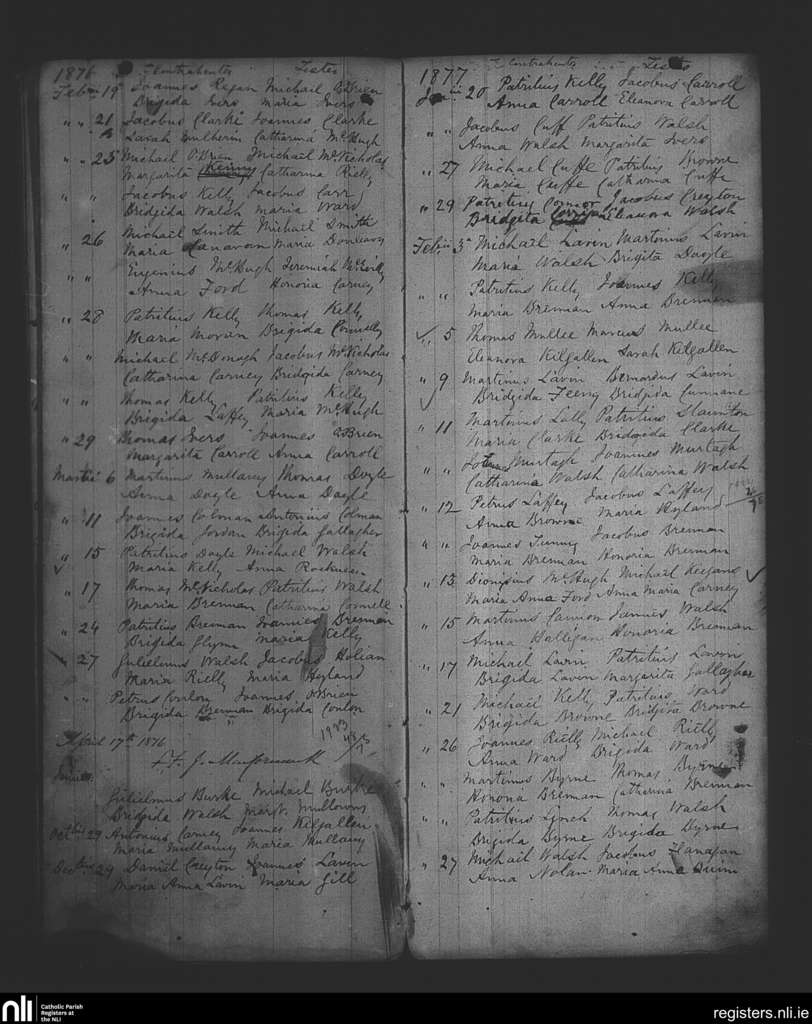 1876 Contrahentes Testes
Feb 19 Joannes Regan Michael O'Brien
Brigida Ivers Maria Ivers
" " 21 Jacobus Clarke Joannes Clarke
Sarah Mulherin Catharina McHugh
" " 25 Michael O'Brien Michael McNicholas
Margarita Kenny Catharina Rielly
" " Jacobus Kelly Jacobus Carr
Bridgida Walsh Maria Ward
" 26 Michael Smith Michael Smith
Maria Canavan Maria Dunleavy
" " Eugenius McHugh Jeremiah
Anna Ford Honoria Carney
" 28 Patritius Kelly Thomas Kelly
Maria Moran Brigida Connelly
" " Michael McDonagh Jacobus McNicholas
Catharina Carney Bridgida Carney
" " Thomas Kelly Patritius Kelly
Brigida Laffey Maria McHugh
" 29 Thomas Ivers Joannes O'Brien
Margarita Carroll Anna Carroll
Martii 6 Martinus Mullany Thomas Doyle
Anna Doyle Anna Doyle
" 11 Joannes Colman Antonius Colman
Brigida Jordan Brigida Gallagher
" 15 Patritius Doyle Michael Walsh
Maria Kelly Anna
" 17 Thomas McNicholas Patritius Walsh
Maria Brennan Catharina Connell
" 24 Patritius Brennan Joannes Brennan
Brigida Glynn Maria Kelly
" 27 Gulielmus Walsh Jacobus
Maria Rielly Maria Hyland
" " Petrus Conlon Joannes O'Brien
Brigida Brennan Brigida Conlon
April 17th 1876
Gulielmus Burke Michael Burke
Bridgida Walsh Margt. Mullowny
Octbris 29 Antonius Carney Joannes Kilgallen
Maria Mullany Maria Mullany
Decbris 29 Daniel Creyton Joannes Lavin
Maria Anna Lavin Maria Gill
1877 Contrahentes Testes
20 Patritius Kelly Jacobus Carroll
Anna Carroll Eleanora Carroll
" " Jacobus Cuff Patritius Walsh
Anna Walsh Margarita Ivers
" 27 Michael Cuffe Patritius Browne
Maria Cuffe Catharina Cuffe
" 29 Patritius Connor Jacobus Creyton
Bridgita Eleanora Walsh
Feb 3 Michael Lavin Martinus Lavin
Maria Walsh Brigita Doyle
" " Patritius Kelly Joannes Kelly
Maria Brennan Anna Brennan
" 5 Thomas Mullee Marcus Mullee
Eleanora Kilgallen Sarah Kilgallen
" 9 Martinus Lavin Bernardus Lavin
Bridgida Feeny Bridgida Cunnane
" 11 Martinus Lally Patritius Staunton
Maria Clarke Bridgida Clarke
" " Murtagh Joannes Murtagh
Catharina Walsh Catharina Walsh
" 12 Petrus Laffey Jacobus Laffey
Anna Browne Maria Hyland
" " Joannes Tunny Jacobus Brennan
Maria Brennan Honoria Brennan
" 13 Dionisius McHugh Michael Keegans
Maria Anna Ford Anna Maria Carney
" 15 Martinus Cannon Joannes Walsh
Anna Halligan Honoria Brennan
" 17 Michael Lavin Patritius Lavin
Brigida Lavin Margarita Gallagher
" 21 Michael Kelly Patritius Ward
Brigida Browne Bridgita Browne
" 26 Joannes Rielly Michael Rielly
Anna Ward Brigida Ward
" " Martinus Byrne Thomas Byrne
Honora Brennan Catharina Brennan
" " Patritius Lynch Thomas Walsh
Brigida Byrne Brigida Byrne
" 27 Michael Walsh Jacobus Flanagan
Anna Nolan Maria Anna Quinn
nli Catholic Parish
Registers at
the NLI
registers.nli.ie